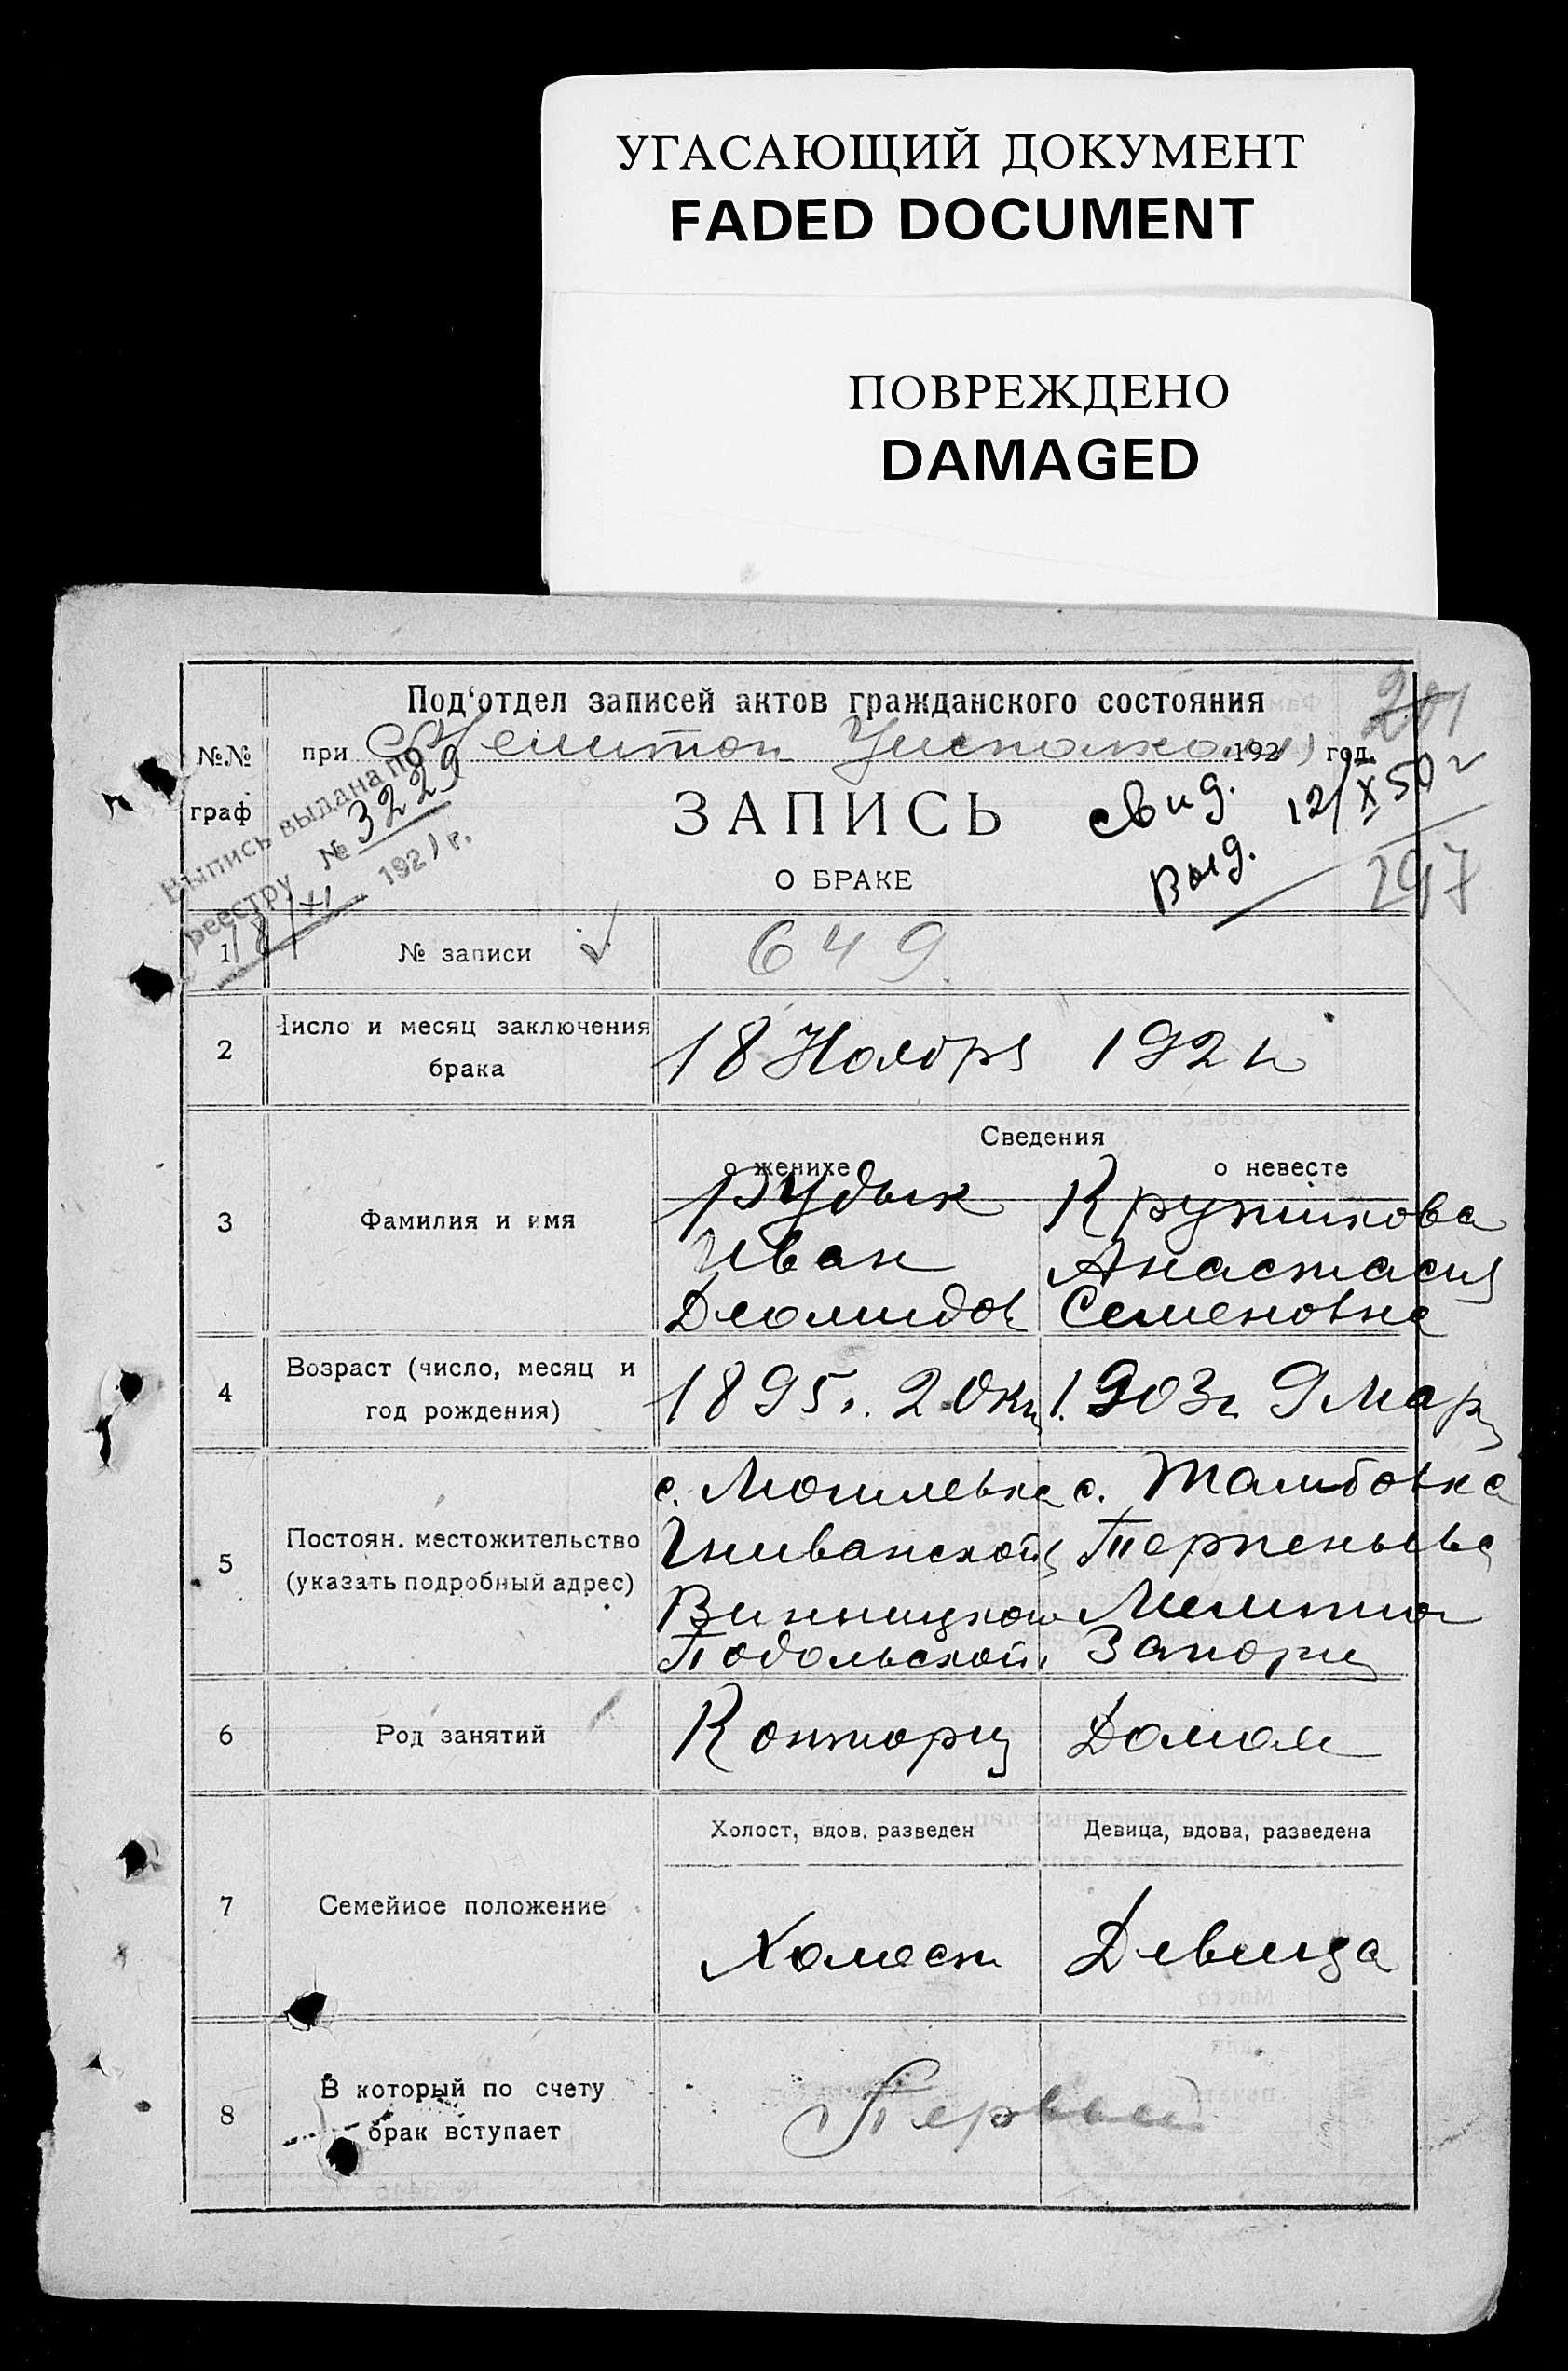 УГАСАЮЩИЙ ДОКУМЕНТ
FADED DOCUMENT
ПОВРЕЖДЕНО
DAMAGED
Под‘отдел записей актов гражданского состояния
201
№№ граф
при Мелитоп Уисполкоме 1921 год
Выпись выдана по
реестру № 3229
18/XI 1921 г.
ЗАПИСЬ
О БРАКЕ
свид. 12/X 50 г
выд.
297
1 № записи 649.
2 Число и месяц заключения
брака
18 Ноября 1921
Сведения
о женихе о невесте
3 Фамилия и имя
Рудык Кружикова
Иван Анастасия
Диомидов Семеновна
4 Возраст (число, месяц и
год рождения)
1895г. 2 Окт 1903г 9 Мар
5 Постоян. местожительство
(указать подробный адрес)
с. Могилевка с. Тамбовка
Гниванской Терпеньева
Винницкой Мелитоп
Подольской Запорж
6 Род занятий Конторщ Домом
Холост, вдов. разведен Девица, вдова, разведена
7 Семейное положение
Холост Девица
8 В который по счету
брак вступает
Первый